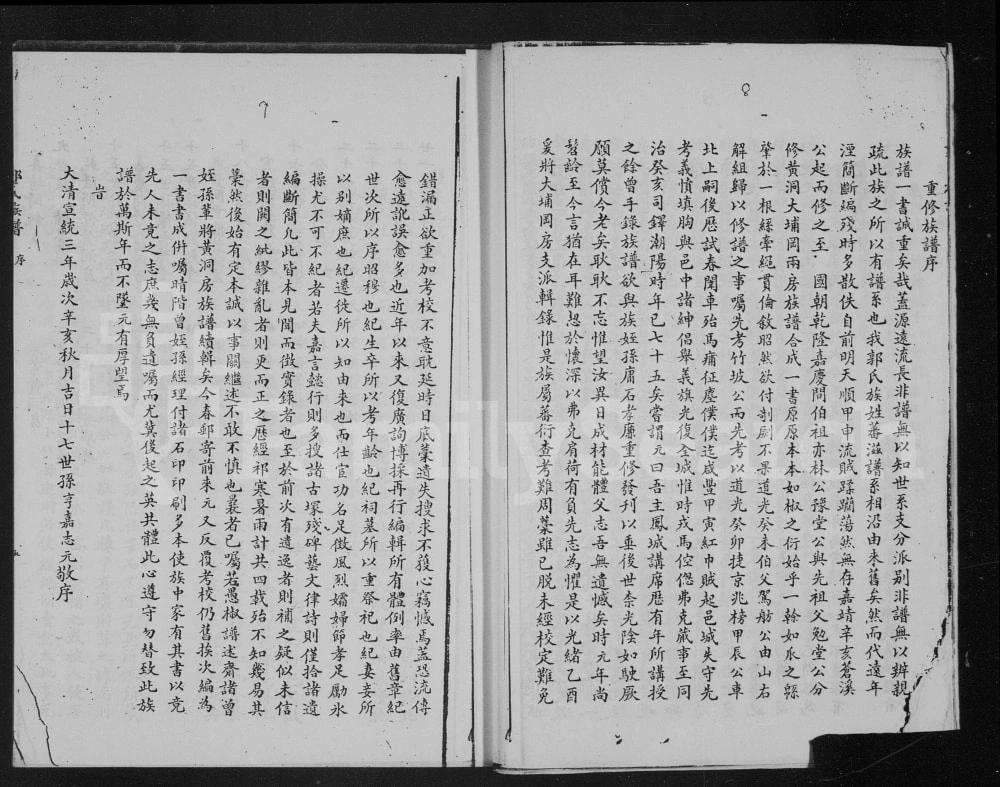 8
重修族譜序
族譜一書誠重矣哉蓋源遠流長非譜無以知世系支分派別非譜無以辨親
疏此族之所以有譜系也我郭氏族姓蕃滋譜系相沿由來舊矣然而代遠年
湮簡斷編殘時多散佚自前明天順甲申流賊蹂躪蕩然無存嘉靖辛亥蒼溪
公起而修之至 國朝乾隆嘉慶間伯祖亦林公豫堂公與先祖父勉堂公分
修黃洞大埔岡兩房族譜合成一書原原本本如椒之衍始乎一榦如瓜之緜
肇於一根絲牽繩貫倫敘昭然欲付剞劂不果道光癸未伯父駕舫公由山右
解組歸以修譜之事囑先考竹坡公而先考以道光癸卯捷京兆榜甲辰公車
北上嗣後歷試春闈車殆馬痡征塵僕僕迄咸豐甲寅紅巾賊起邑城失守先
考義憤填胸與邑中諸紳倡舉義旗光復全城惟時戎馬倥傯弗克蕆事至同
治癸亥司鐸潮陽時年已七十五矣嘗謂元曰吾主鳳城講席歷有年所講授
之餘曾手錄族譜欲與族姪孫庸石孝廉重修發刊以垂後世柰光陰如駛厥
願莫償今老矣耿耿不忘惟望汝異日成材能體父志吾無遺憾矣時元年尚
髫齡至今言猶在耳難恝於懷深以弗克肩荷有負先志為懼是以光緒乙酉
爰將大埔岡房支派輯錄惟是族屬蕃衍查考難周藁雖已脫未經校定難免
7
錯漏正欲重加考校不意耽延時日底藁遺失搜求不獲心竊憾焉蓋恐流傳
愈遠訛誤愈多也近年以來又復廣詢博採再行編輯所有體例率由舊章紀
世次所以序昭穆也紀生卒所以考年齡也紀祠墓所以重祭祀也紀妻妾所
以別嫡庶也紀遷徙所以知由來也而仕宦功名足徵風烈孀婦節孝足勵冰
操尤不可不紀者若夫嘉言懿行則多搜諸古塚殘碑藝文律詩則僅拾諸遺
編斷簡凡此皆本見聞而徵實錄者也至於前次有遺逸者則補之疑似未信
者則闕之紕繆雜亂者則更而正之歷經祁寒暑雨計共四載殆不知幾易其
藁然後始有定本誠以事關繼述不敢不慎也曩者已囑若愚椒譜述齋諸曾
姪孫輩將黃洞房族譜續輯矣今春郵寄前來元又反覆考校仍舊挨次編為
一書書成併囑時階曾姪孫經理付諸石印印刷多本使族中家有其書以竟
先人未竟之志庶幾無負遺囑而尤冀後起之英共體此心遵守勿替致此族
譜於萬斯年而不墜元有厚望焉
旹
大清宣統三年歲次辛亥秋月吉日十七世孫亨嘉志元敬序
郭氏族譜 序